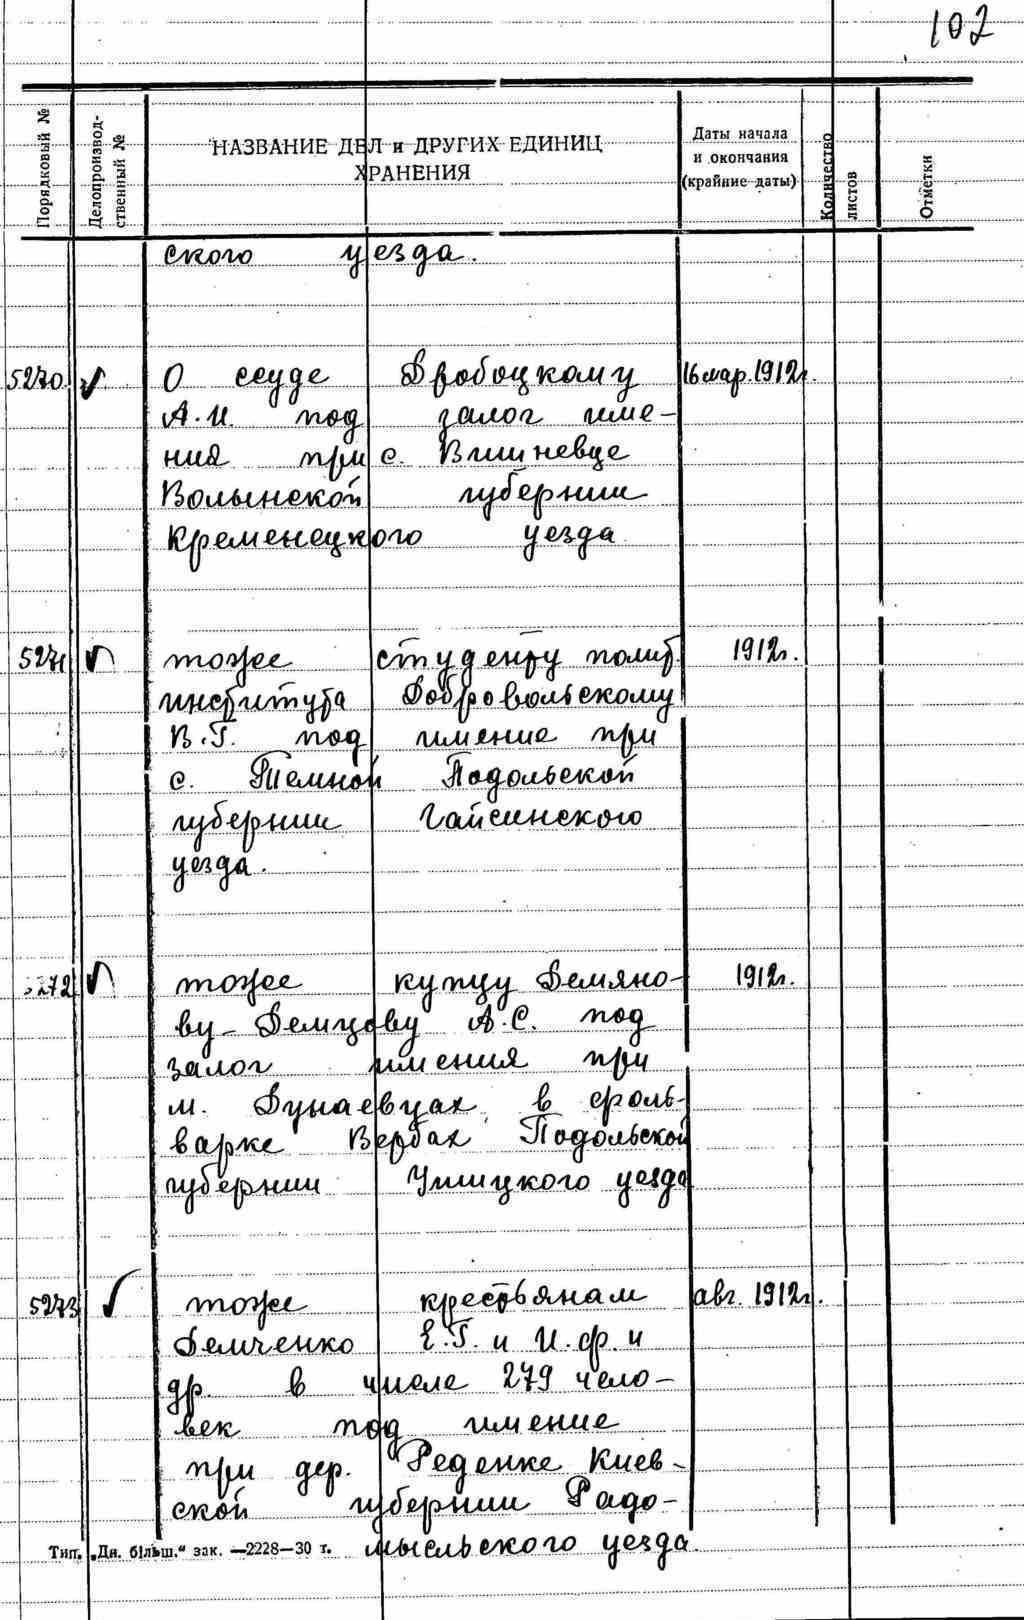 102
Порядковый №
Делопроизвод-
ственный №
НАЗВАНИЕ ДЕЛ и ДРУГИХ ЕДИНИЦ
ХРАНЕНИЯ
Даты начала
и окончания
(крайние даты)
Количество
листов
Отметки
ского уезда.
5270. О ссуде Дробоцкому 16 мар. 1912г.
А.И. под залог име-
ния при с. Вишневце
Волынской губернии
Кременецкого уезда
5271 тоже студенту полит. 1912г.
института Добровольскому
В.Г. под имение при
с. Темной Подольской
губернии Гайсинского
уезда.
5272 тоже купцу Демяно- 1912г.
ву-Демцову А.С. под
залог имения при
м. Дунаевцах, в фоль-
варке Вербах Подольской
губернии Ушицкого уезда
5273 тоже крестьянам авг. 1912г.
Демченко Е.Г. и И.Ф. и
др. в числе 279 чело-
век под имение
при дер. Реденке Киев-
ской губернии Радо-
мысльского уезда.
Тип. „Дн. більш.“ зак. —2228—30 т.